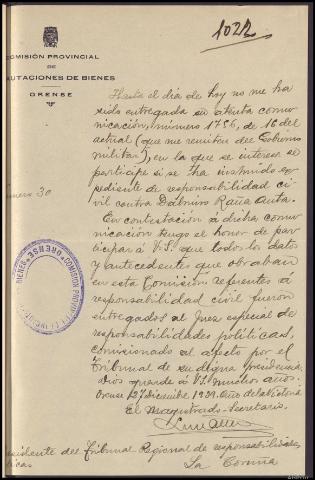 1022
COMISIÓN PROVINCIAL
DE
AUTACIONES DE BIENES
ORENSE
Hasta el día de hoy no me ha
sido entregada su atenta comu-
nicación, número 1756, de 16 del
actual (que me remiten del Gobierno
militar), en la que se interesa se
participe si se ha instruido ex-
pediente de responsabilidad ci-
vil contra Dalmiro
número 30
En contestación á dicha comu-
nicación tengo el honor de par-
ticipar á V.S. que todos los datos
y antecedentes que obraban
en esta Comisión referentes á
responsabilidad civil fueron
entregados al Juez especial de
responsabilidades políticas,
comisionado al efecto por el
Tribunal de su digna presidencia.
Dios guarde á V.S. muchos años.
Orense 27 diciembre 1939. Año de la Victoria
El Magistrado-Secretario.
sidente del Tribunal Regional de responsabilidades
ticas
La Coruña
COMISION PROVINCIAL
BIENES
ORENSE